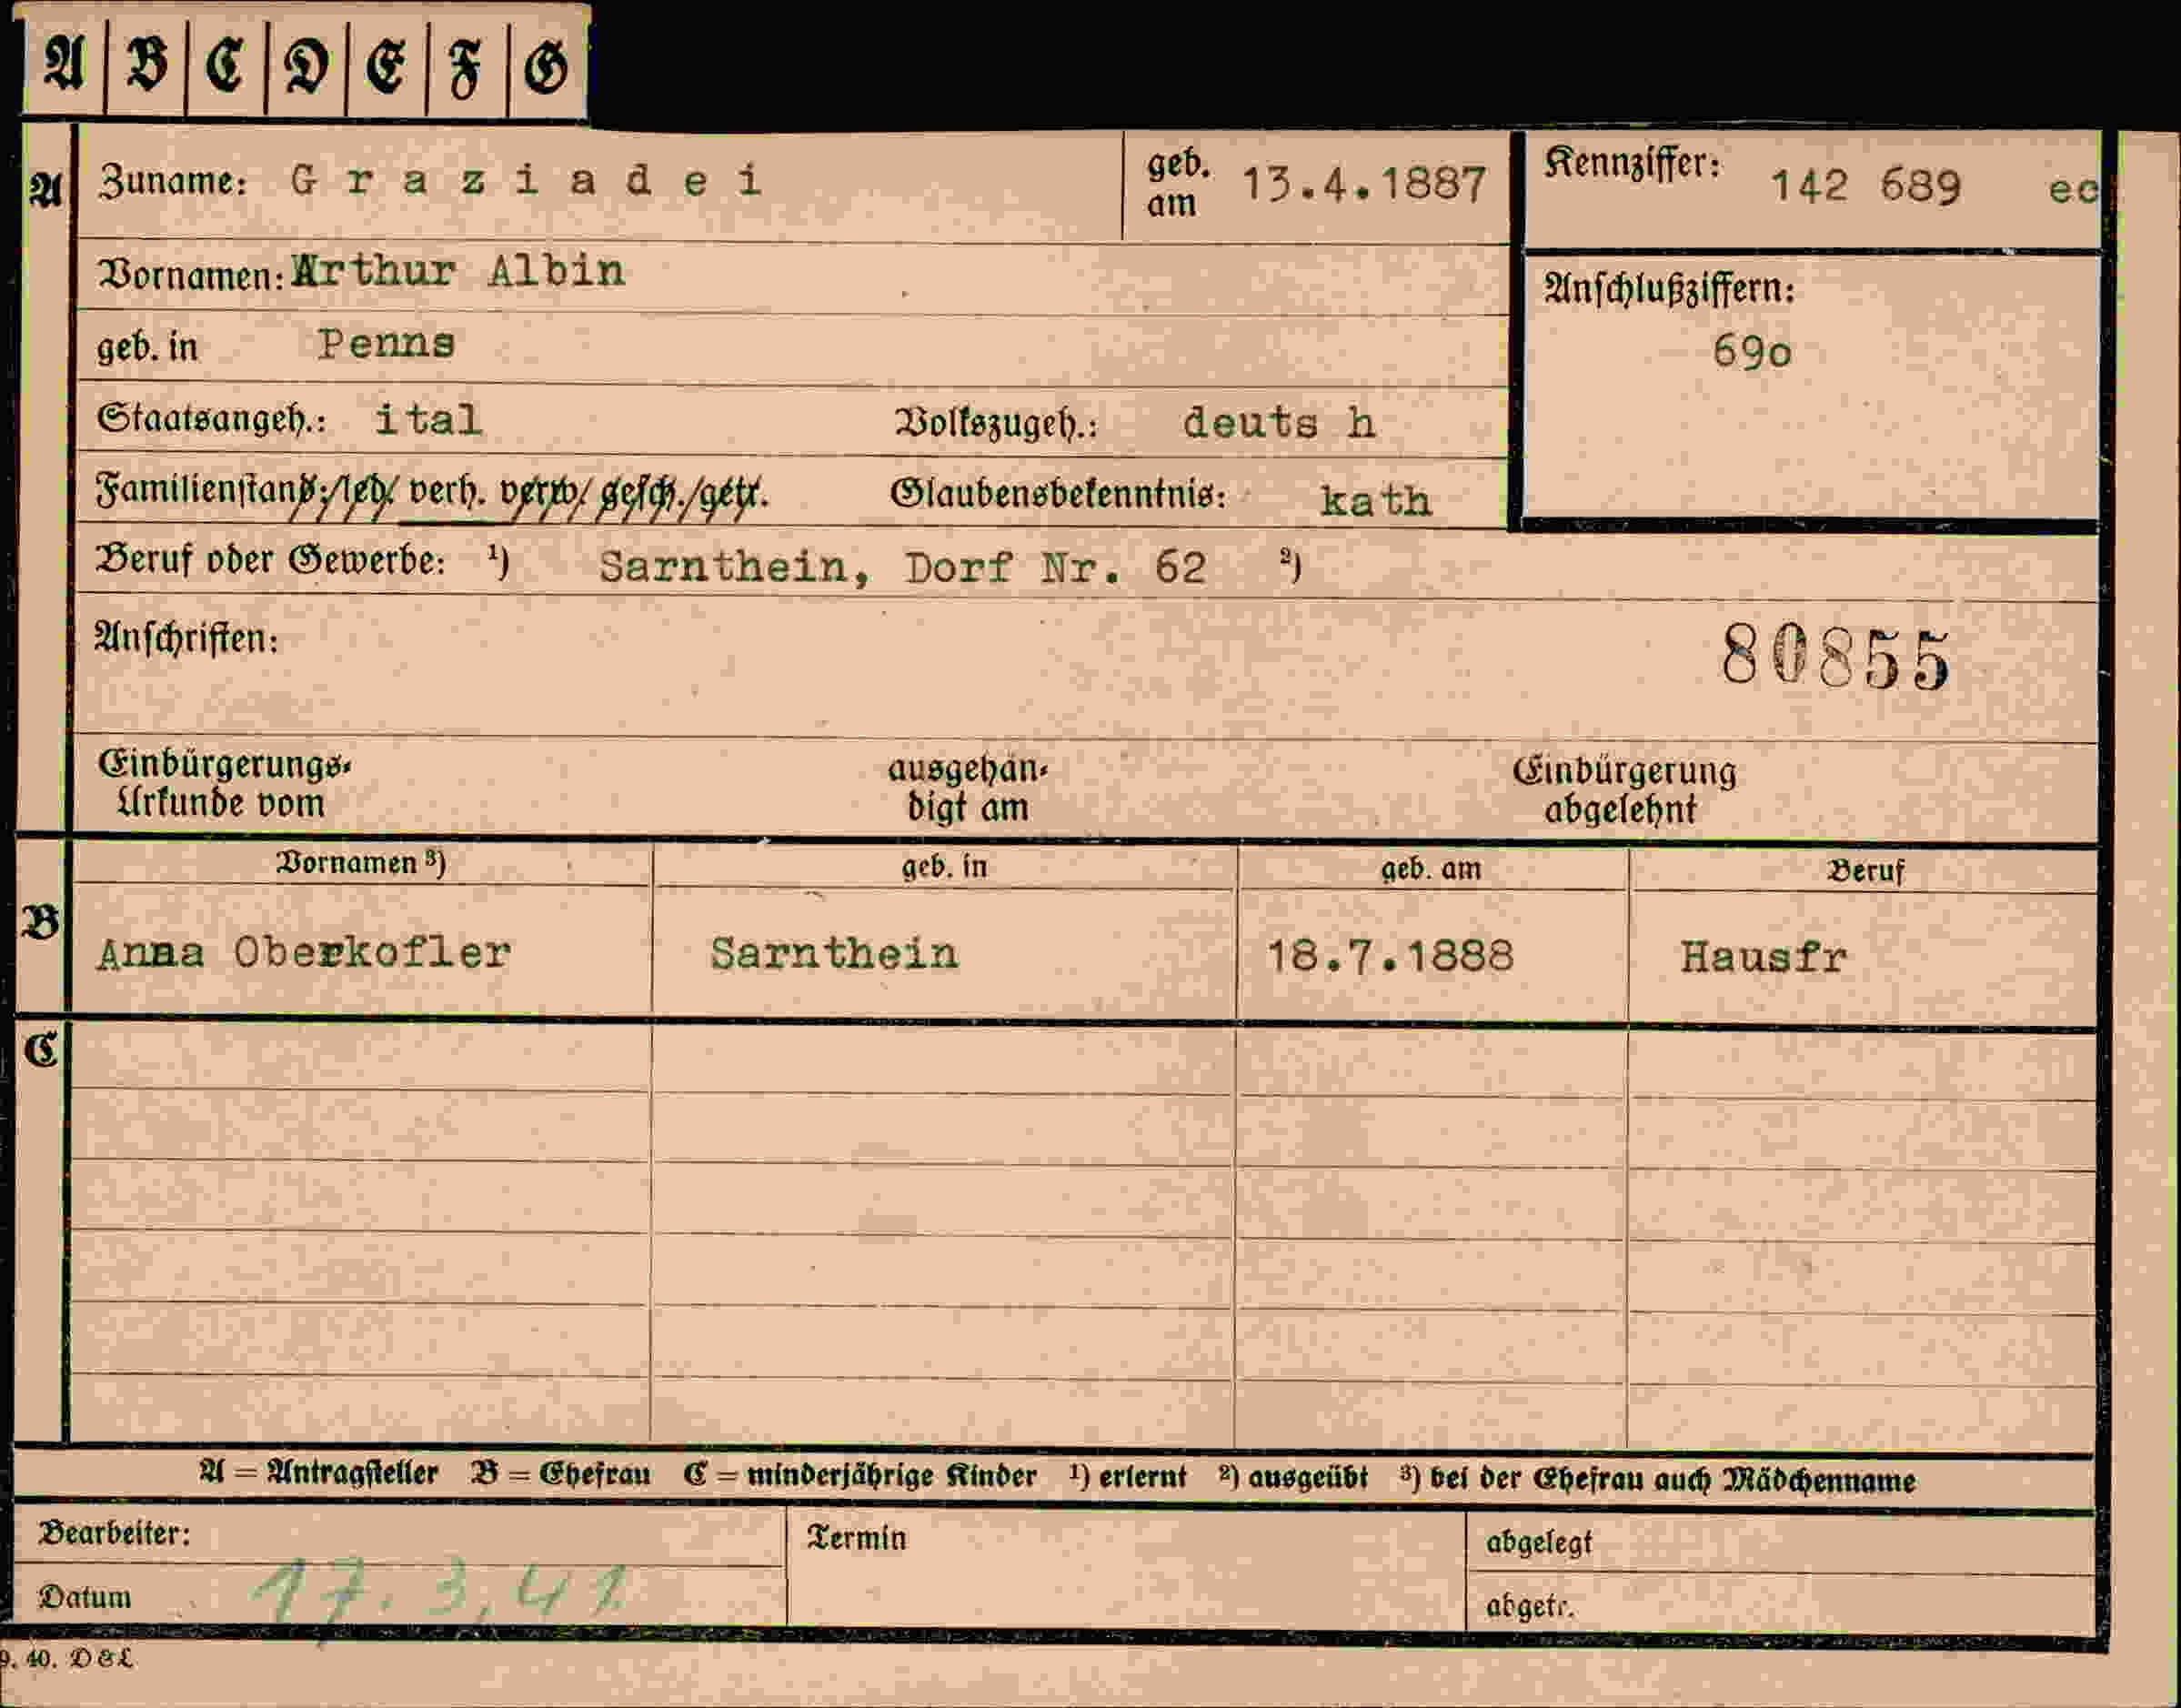 A B C D E F G
A Zuname: Graziadei geb. am 13.4.1887 Kennziffer: 142 689 ec
Vornamen: Arthur Albin
Anschlußziffern:
geb. in Penns 69o
Staatsangeh.: ital Volkszugeh.: deuts h
Familienstand: led. verh. verw. gesch./getr. Glaubensbekenntnis: kath
Beruf oder Gewerbe: ¹) Sarnthein, Dorf Nr. 62 ²)
Anschriften: 80855
Einbürgerungs-Urkunde vom ausgehän-digt am Einbürgerung abgelehnt
Vornamen ³) geb. in geb. am Beruf
B Anna Oberkofler Sarnthein 18.7.1888 Hausfr
C
A = Antragsteller B = Ehefrau C = minderjährige Kinder ¹) erlernt ²) ausgeübt ³) bei der Ehefrau auch Mädchenname
Bearbeiter: Termin abgelegt
Datum 17.3.41 abgetr.
9. 40. D & L